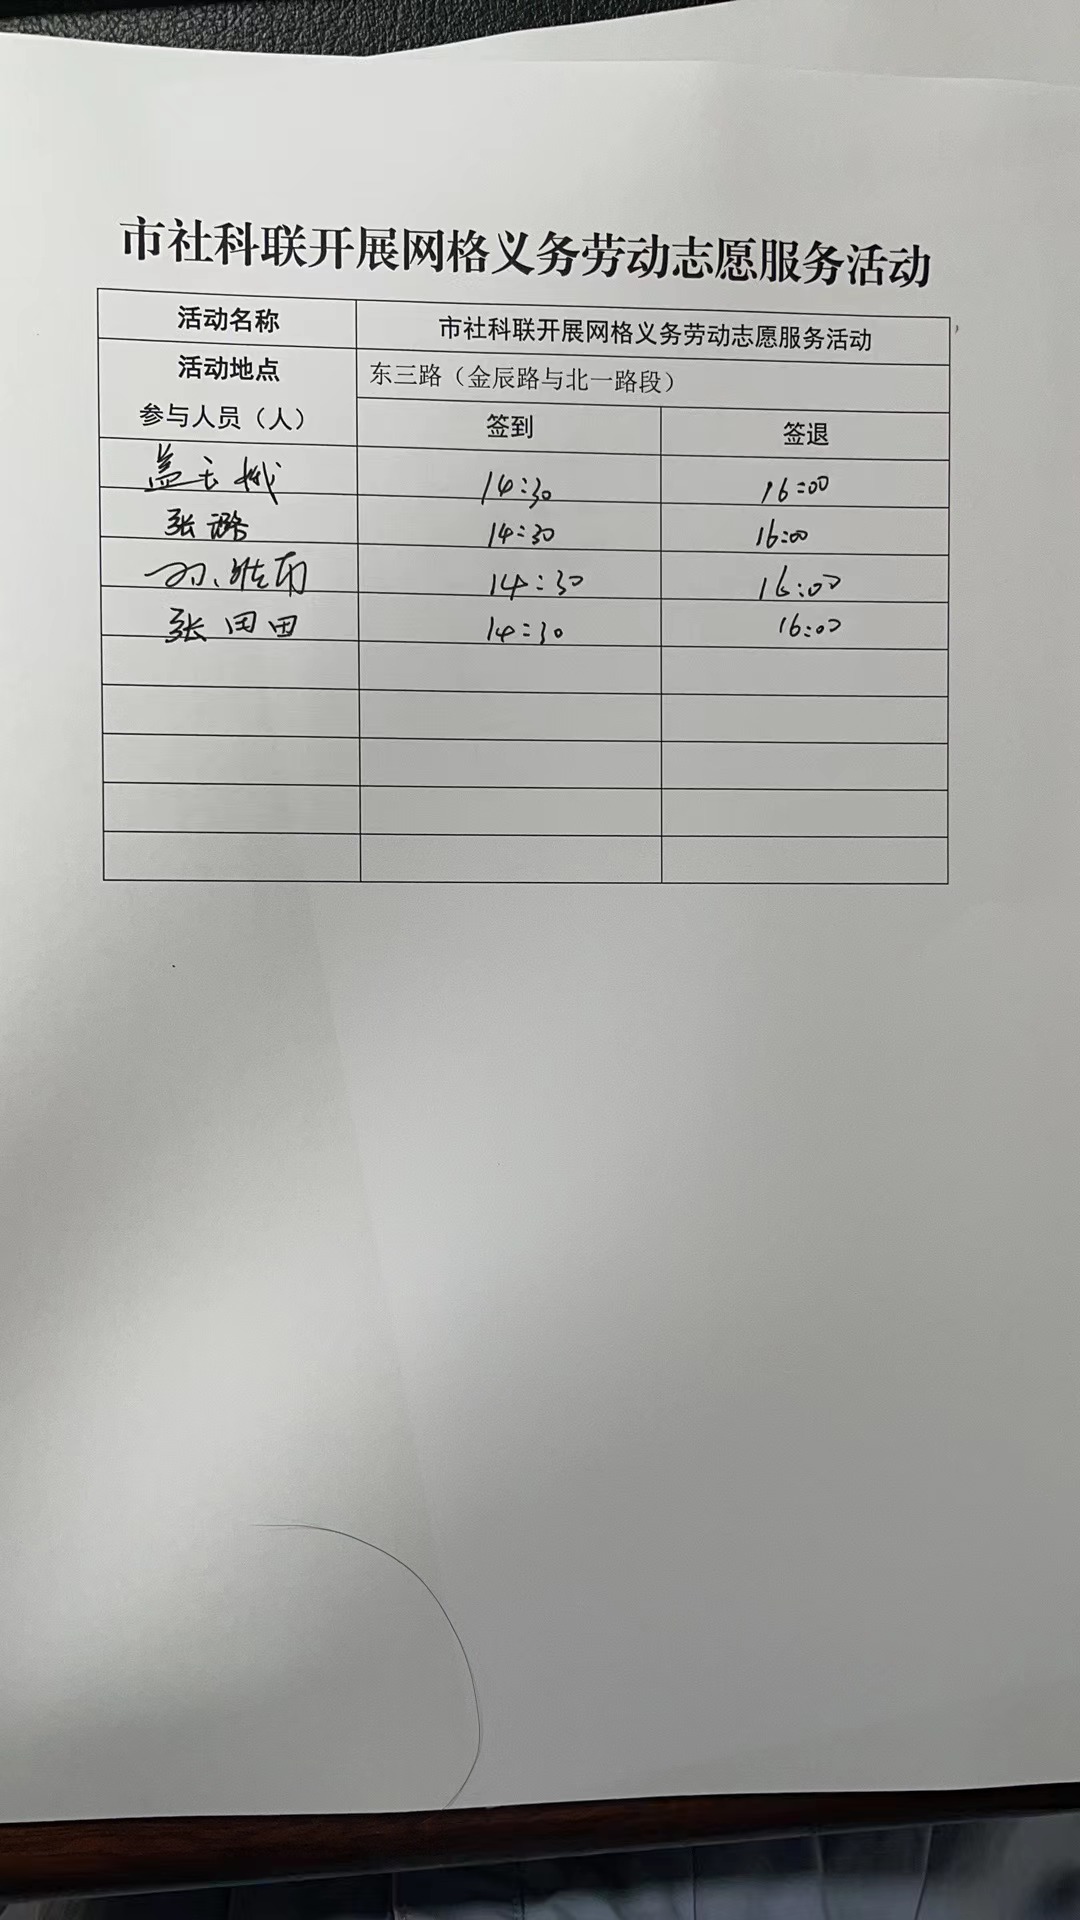 市社科联开展网格义务劳动志愿服务活动
活动名称 市社科联开展网格义务劳动志愿服务活动
活动地点 东三路（金辰路与北一路段）
参与人员（人） 签到 签退
盖 14:30 16:00
张璐 14:30 16:00
14:30 16:00
张田田 14:30 16:00